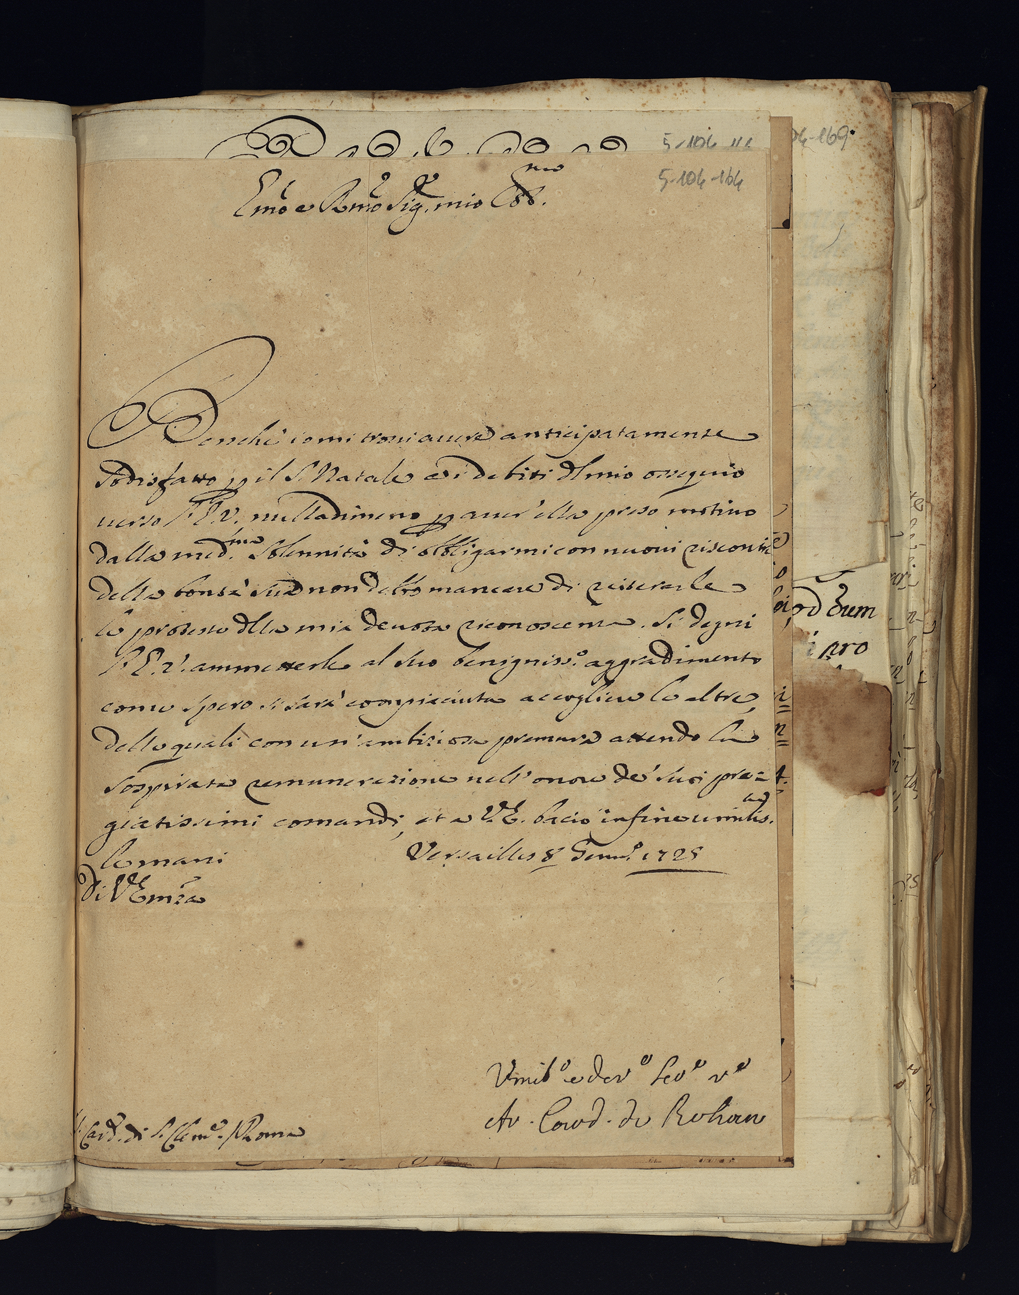 5-104-164
Em̃o e Rm̃o Sig.r mio Oss.mo
Benche io mi trovi avere anticipatamente
sodisfatto p il S. Natale ai debiti del mio ossequio
verso l'E. V. nulladimeno p aver' ella preso motivo
dalla med.ma Solennità di obbligarmi con nuovi riscontri
della bontà sua non debbo mancare di reiterarle
le proteste della mia devota riconoscenza. Si degni
l'E. V. ammetterle al suo benigniss.o aggradimento
come spero si sarà compiaciuta accogliere le altre,
delle quali con un'ambiziosa premura attendo la
sospirata remunerazione nell'onore de' suoi pre=
giatissimi comandi, et a V. E. bacio infine umilis.te
le mani
Versailles 8 Genn.o 1725
Di V. Em̃za
Umil.o e dev.o Ser.e v.o
Ar. Card. de Rohan
Card. di S. Clem.e Roma